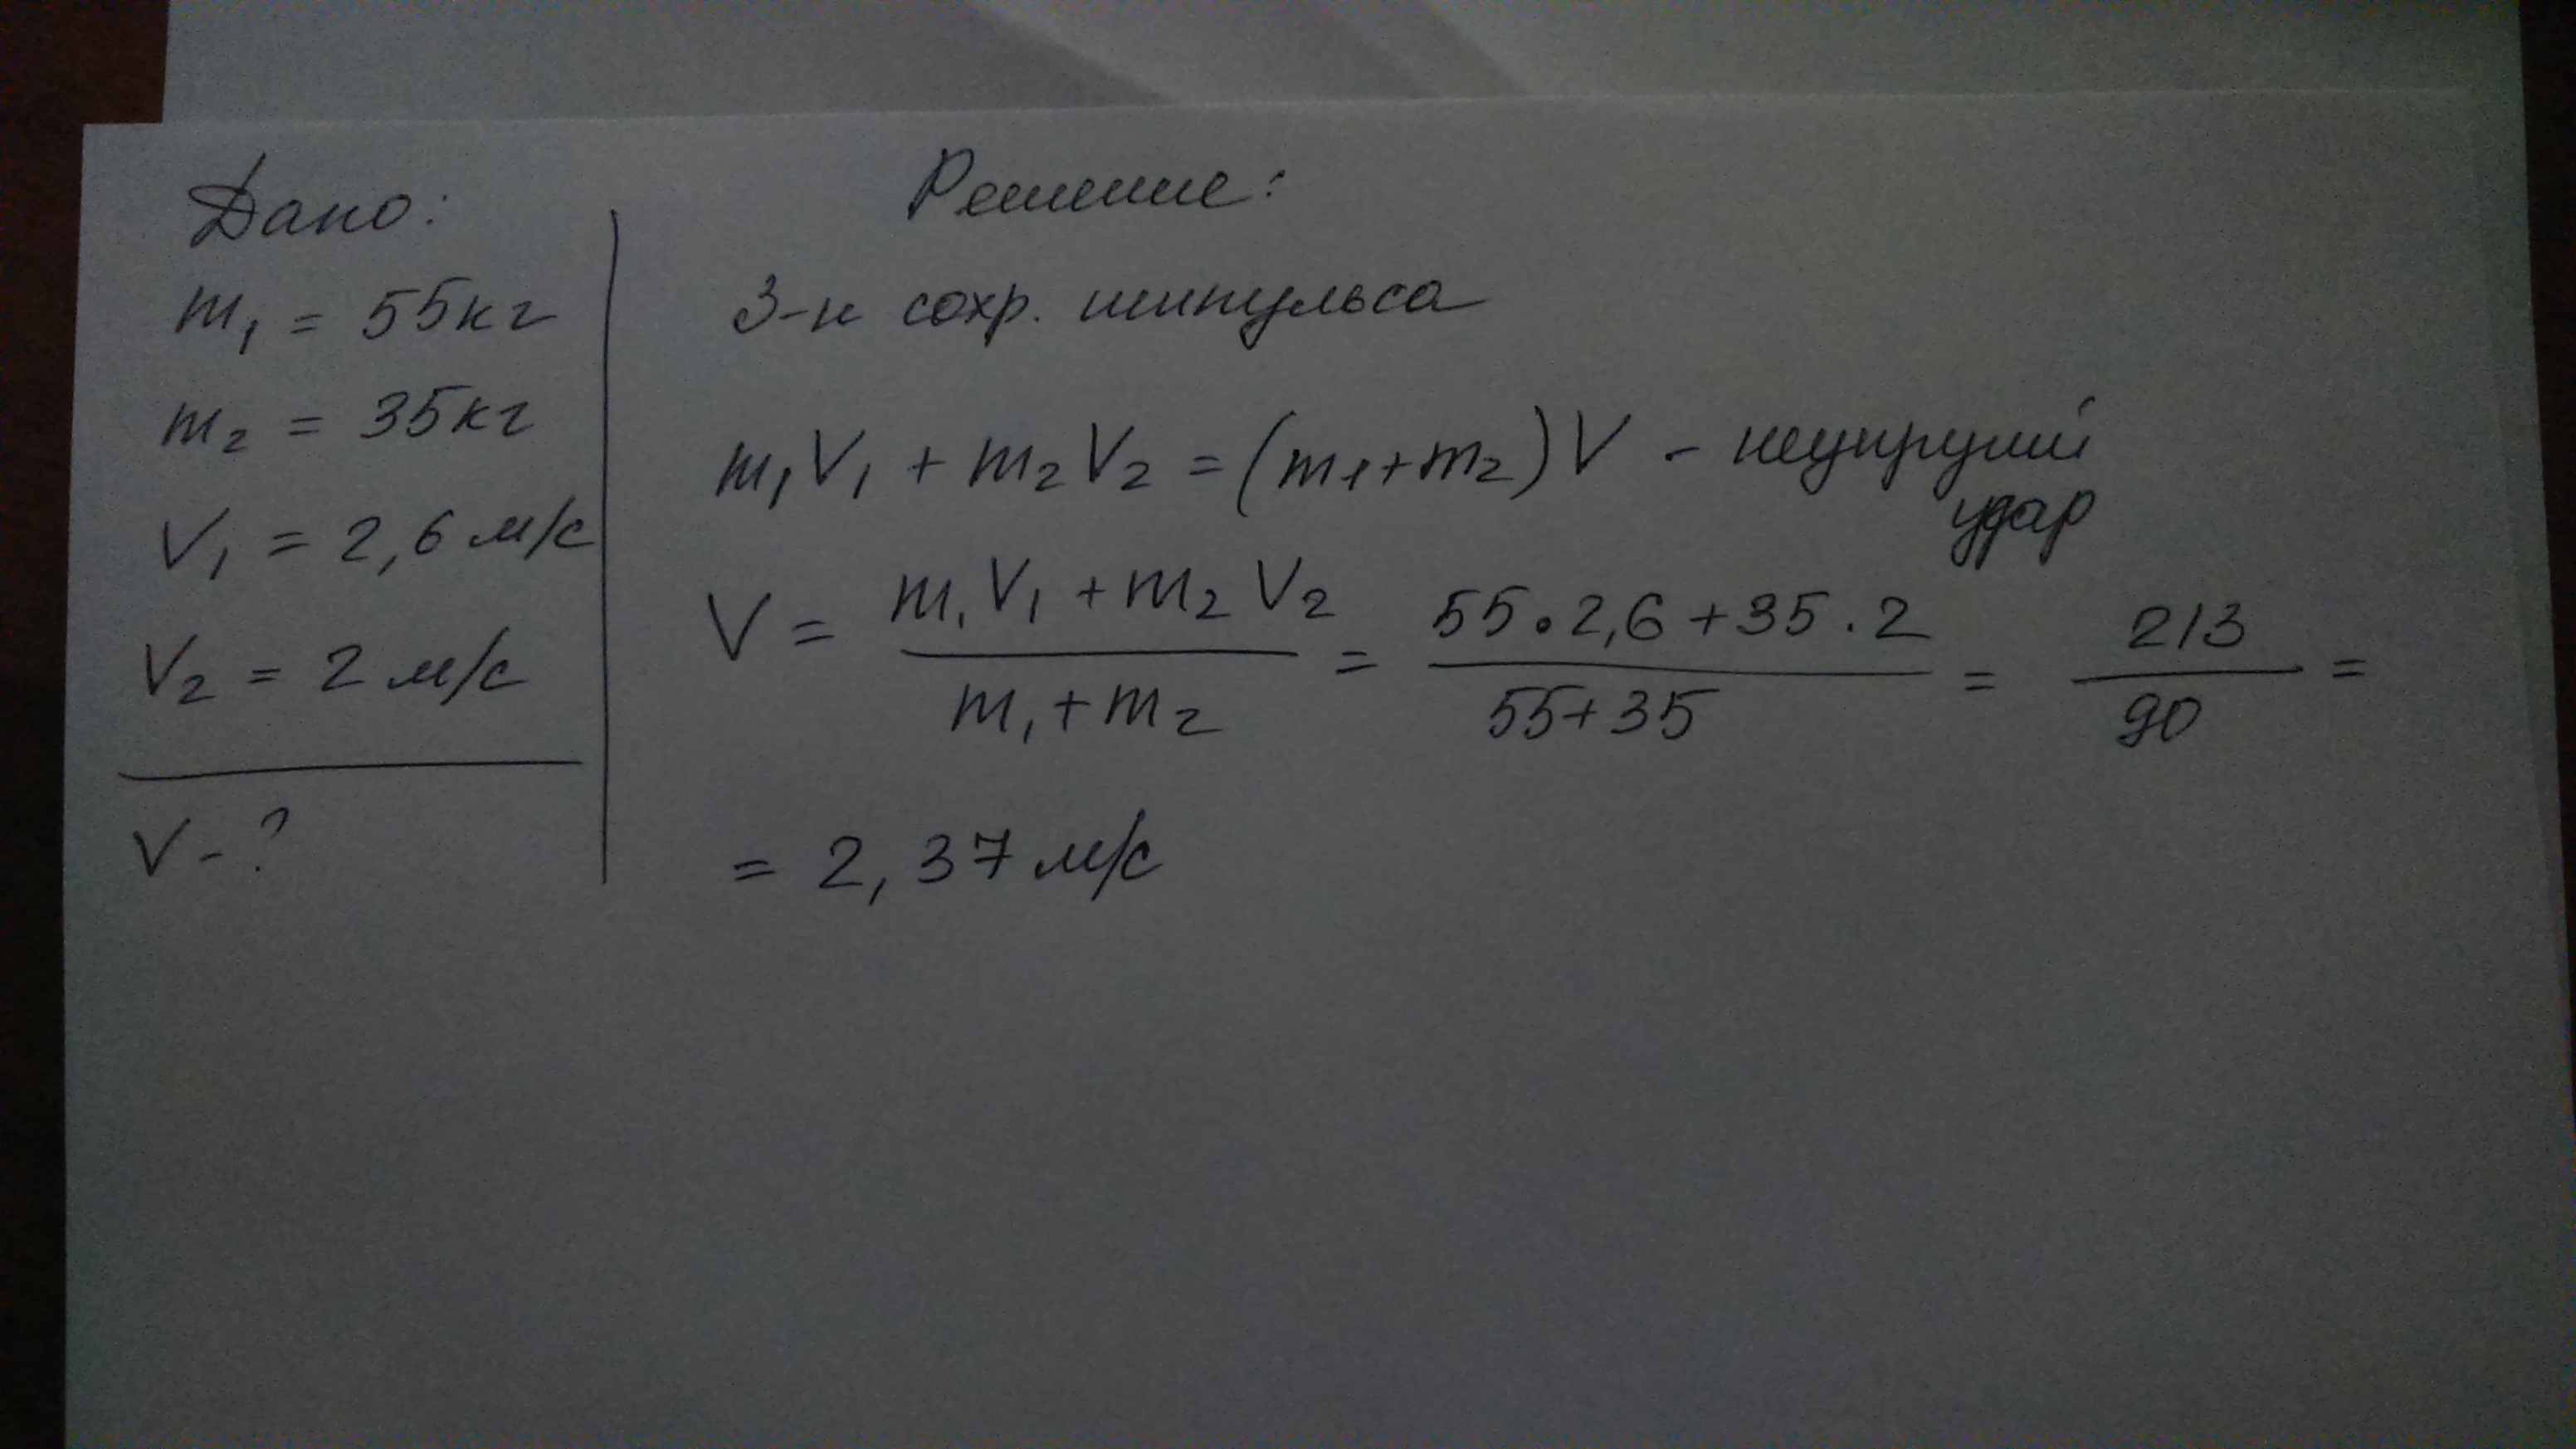 Дано:
m₁ = 55кг
m₂ = 35кг
V₁ = 2,6 м/с
V₂ = 2 м/с
V - ?
Решение:
З-н сохр. импульса
m₁V₁ + m₂V₂ = (m₁+m₂)V - неупругий
удар
V = (m₁V₁ + m₂V₂)/(m₁+m₂) = (55·2,6+35·2)/(55+35) = 213/90 =
= 2,37 м/с